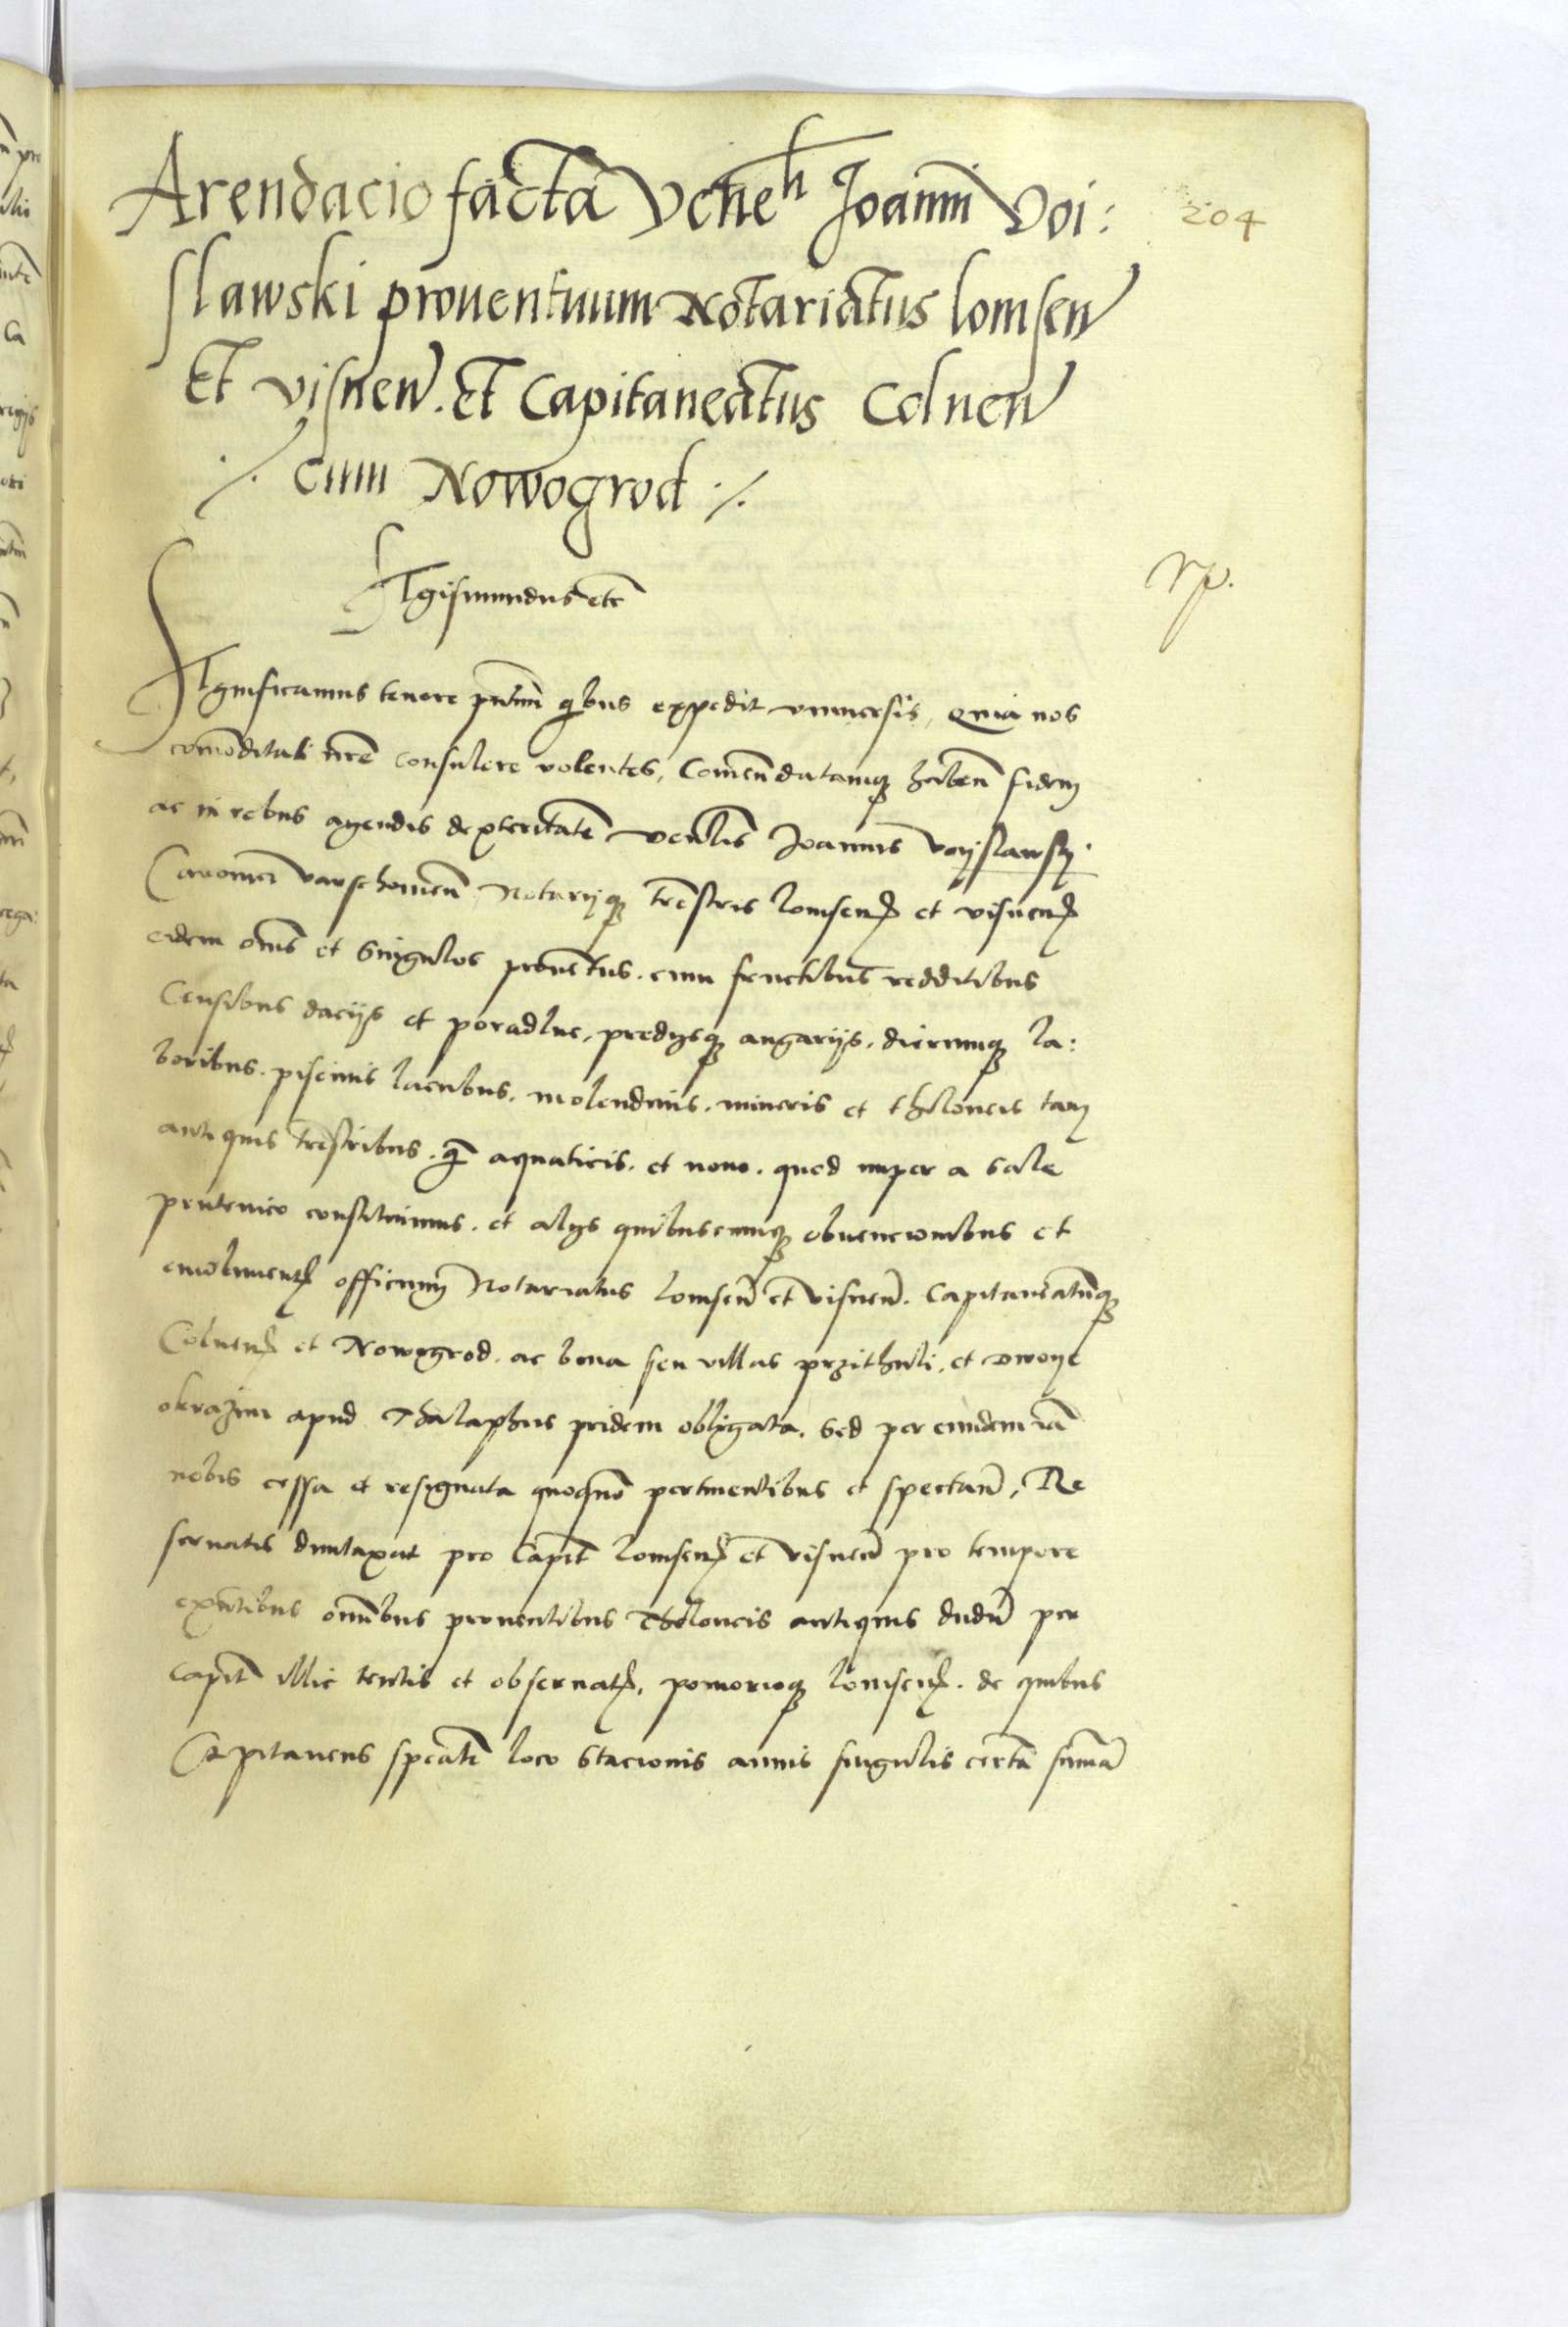 Arendacio facta Veneli Joanni Voi:
slawski proventuum Notariatus lomsen
Et visnen. Et Capitaneatus Colnen
·/· cum Nowogrod ·/·
204
Sigismundus etc
Significamus tenore pntium qbus expedit vniuersis, Quia nos
comoditati nre consulere volentes, Comendatamq habent fidem
ac in rebus agendis dexteritatem venlis Joannis Voyslawsky.
Canonici varschouien Notarijq trestris lomsen et visnen
eidem omes et singulos prouentus. cum fructibus redditibus
Censibus dacijs et poradlne, predijsq angarijs. dierumq la:
boribus. piscinis lacubus. molendinis. mineris et theloneis tam
antiquis trestribus. q aquaticis. et nouo. quod nuper a sale
prutenico constituimus. et alijs quibuscumq obuencionibus et
emolument officium Notariatus lomsen et visnen. Capitaneatumq
Colnen et Nowogrod. ac bona seu villas przithuli. et dwoye
okrazim apud Thalaphus pridem obligata. sed per eundem iam
nobis cessa et resignata quoquo pertinentibus et spectan, Re
seruatis duntaxat pro Capit lomsen et visnen pro tempore
exntibus omibus prouentibus Theloneis antiquis dudum per
capit illic tentis et obseruat, pomorioq lomsen. de quibus
Capitaneus speat loco stacionis annis singulis certa suma